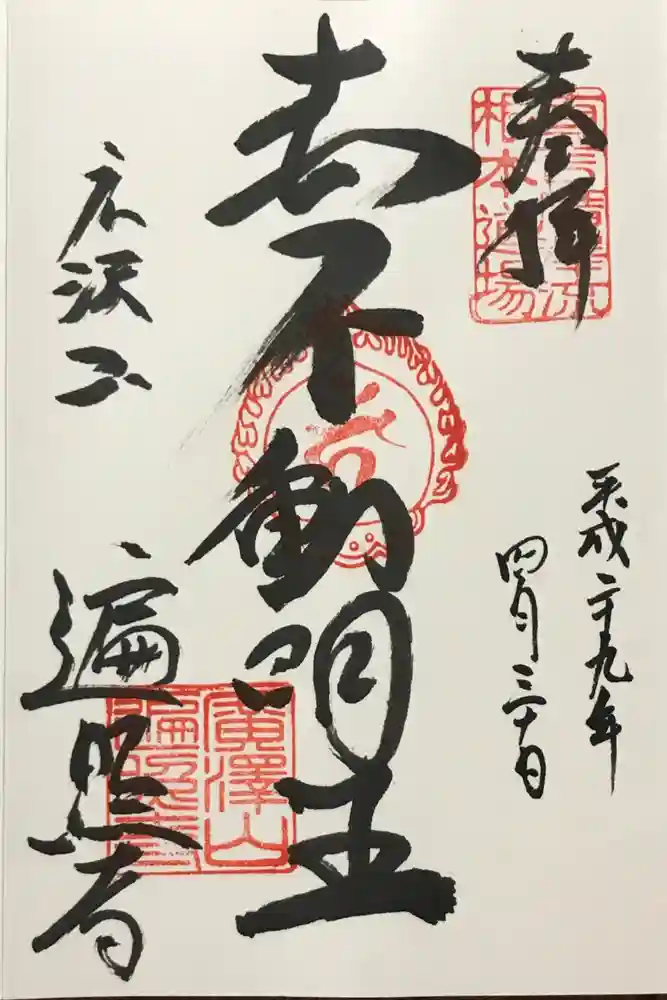 奉拝
根本道場
平成二十九年
四月三十日
赤不動明王
広沢山
遍照寺
廣澤山
遍照寺